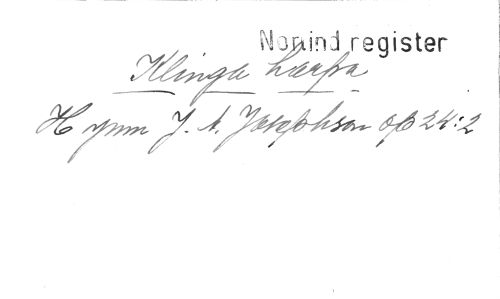 Norlind register
Klinga harpa
Hymn J. A. Josephson op 24:2